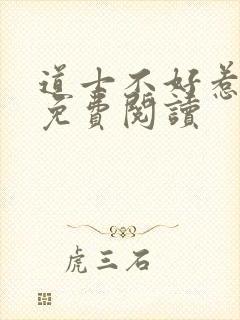 道士不好惹
免費閱讀
虎三石